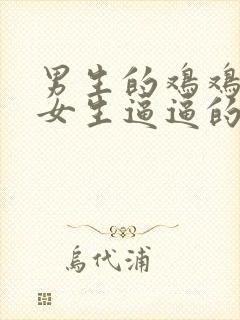 男生的鸡鸡
女生逼逼的
烏代浦